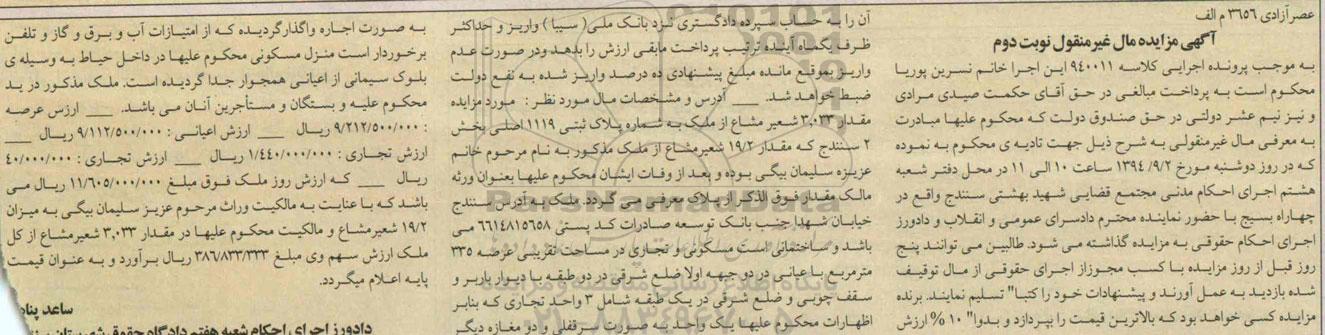 عصرآزادی ۳۶۵۶ م الف
آگهی مزایده مال غیرمنقول نوبت دوم
به موجب پرونده اجرایی کلاسه ۹۴۰۰۱۱ این اجرا خانم نسرین پوریا
محکوم است به پرداخت مبالغی در حق آقای حکمت صیدی مرادی
و نیز نیم عشر دولتی در حق صندوق دولت که محکوم علیها مبادرت
به معرفی مال غیرمنقولی به شرح ذیل جهت تادیه ی محکوم به نموده
که در روز دوشنبه مورخ ۱۳۹۴/۹/۲ ساعت ۱۰ الی ۱۱ در محل دفتر شعبه
هشتم اجرای احکام مدنی مجتمع قضایی شهید بهشتی سنندج واقع در
چهاراه بسیج با حضور نماینده محترم دادسرای عمومی و انقلاب و دادورز
اجرای احکام حقوقی به مزایده گذاشته می شود. طالبین می توانند پنج
روز قبل از روز مزایده با کسب مجوزاز اجرای حقوقی از مال توقیف
شده بازدید به عمل آورند و پیشنهادات خود را کتبا" تسلیم نمایند. برنده
مزایده کسی خواهد بود که بالاترین قیمت را بپردازد و بدوا" ۱۰ % ارزش
آن را به حساب سپرده دادگستری نزد بانک ملی ( سیبا ) واریز و حداکثر
ظرف یکماه آینده ترتیب پرداخت مابقی ارزش را بدهد ودر صورت عدم
واریز بموقع مانده مبلغ پیشنهادی ده درصد واریز شده به نفع دولت
ضبط خواهد شد. ___ آدرس و مشخصات مال مورد نظر : مورد مزایده
مقدار ۳,۰۳۳ شعیر مشاع از ملک به شماره پلاک ثبتی ۱۱۱۹ اصلی بخش
۲ سنندج که مقدار ۱۹/۲ شعیرمشاع از ملک مذکور به نام مرحوم خانم
عزیزه سلیمان بیگی بوده و بعد از وفات ایشان محکوم علیها بعنوان ورثه
مالک مقدار فوق الذکر از پلاک معرفی می گردد. ملک به آدرس سنندج
خیابان شهدا جنب بانک توسعه صادرات کد پستی ۶۶۱۴۸۱۵۶۵۸ می
باشد و ساختمانی است مسکونی و تجاری در مساحت تقریبی عرصه ۳۳۵
مترمربع با عیانی در دو جبهه اولا ضلع شرقی در دو طبقه با دیوار باربر و
سقف چوبی و ضلع شرقی در یک طبقه شامل ۳ واحد تجاری که بنابر
اظهارات محکوم علیها یک واحد به صورت سرقفلی و دو مغازه دیگر
به صورت اجاره واگذارگردیده که از امتیازات آب و برق و گاز و تلفن
برخوردار است منزل مسکونی محکوم علیها در داخل حیاط به وسیله ی
بلوک سیمانی از اعیانی همجوار جدا گردیده است. ملک مذکور در ید
محکوم علیه و بستگان و مستأجرین آنان می باشد. ___ ارزس عرصه
: ۹/۲۱۲/۵۰۰/۰۰۰ ریال ___ ارزش اعیانی : ۹/۱۱۲/۵۰۰/۰۰۰ ریال ___
ارزش تجاری : ۱/۴۴۰/۰۰۰/۰۰۰ ریال ___ ارزش تجاری : ۴۰/۰۰۰/۰۰۰
ریال ___ که ارزش روز ملک فوق مبلغ ۱۱/۶۰۵/۰۰۰/۰۰۰ ریال می
باشد که با عنایت به مالکیت وراث مرحوم عزیز سلیمان بیگی به میزان
۱۹/۲ شعیرمشاع و مالکیت محکوم علیها در مقدار ۳,۰۳۳ شعیرمشاع از کل
ملک ارزش سهم وی مبلغ ۳۸۶/۸۳۳/۳۳۳ ریال برآورد و به عنوان قیمت
پایه اعلام میگردد.
ساعد پناه
دادورز اجرای احکام شعبه هفتم دادگاه حقوقی شهرستان